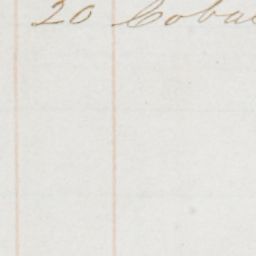 20 Coba